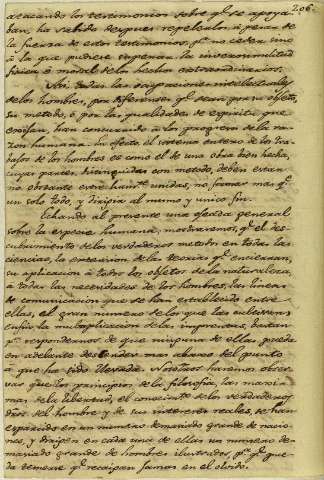 206.
atacando los testimonios sobre qe. se apoya-
ban, ha sabido despues repelerlos, á pesar de
la fuerza de estos testimonios, pa. no ceder sino
á la que pudiere superar la inverosimilitud
fisica ó moral de los hechos extraordinarios.
Asi todas las ocupaciones intelectuales
de los hombres, por diferentes qe. sean por su objeto,
su metodo, ó por las qualidades de espiritu que
exijan, han concurrido á los progresos de la ra-
zon humana. En efecto el sistema entero de los tra-
bajos de los hombres es como el de una obra bien hecha,
cuyas partes, distinguidas con metodo, deben estar
no obstante estrechamte. unidas, no formar mas qe.
un solo todo, y dirigirse al mismo y unico fin.
Echando al presente una ojeada general
sobre la especie humana, mostraremos, qe. el des-
cubrimiento de los verdaderos metodos en todas las
ciencias, la extension de las teorias qe. encierran,
su aplicacion á todos los objetos de la naturaleza,
á todas las necesidades de los hombres, las lineas
de comunicacion que se han establecido entre
ellas, el gran numero de los que las cultivan,
enfin la multiplicacion de las imprentas, bastan
pa. respondernos de que ninguna de ellas puede
en adelante descender mas abaxo del punto
á que ha sido llevada. Nosotros haremos obser-
var que los principios de la filosofia, las maxi-
mas de la libertad, el conocimto. de los verdaderos
dros. del hombre y de sus intereses reales, se han
esparcido en un numero demasiado grande de nacio-
nes, y dirigen en cada una de ellas un numero de-
masiado grande de hombres ilustrados, pa. qe. que-
da temerse qe. recaigan jamas en el olvido.